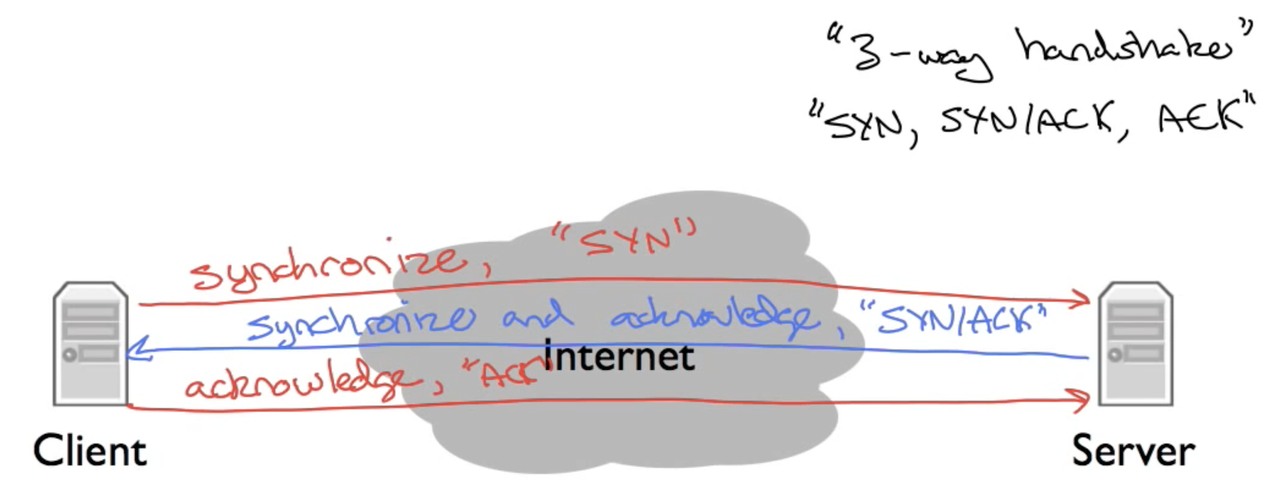 "3-way handshake"
"SYN, SYN/ACK, ACK"
synchronize, "SYN"
synchronize and acknowledge, "SYN/ACK"
Internet
acknowledge, "ACK"
Client
Server